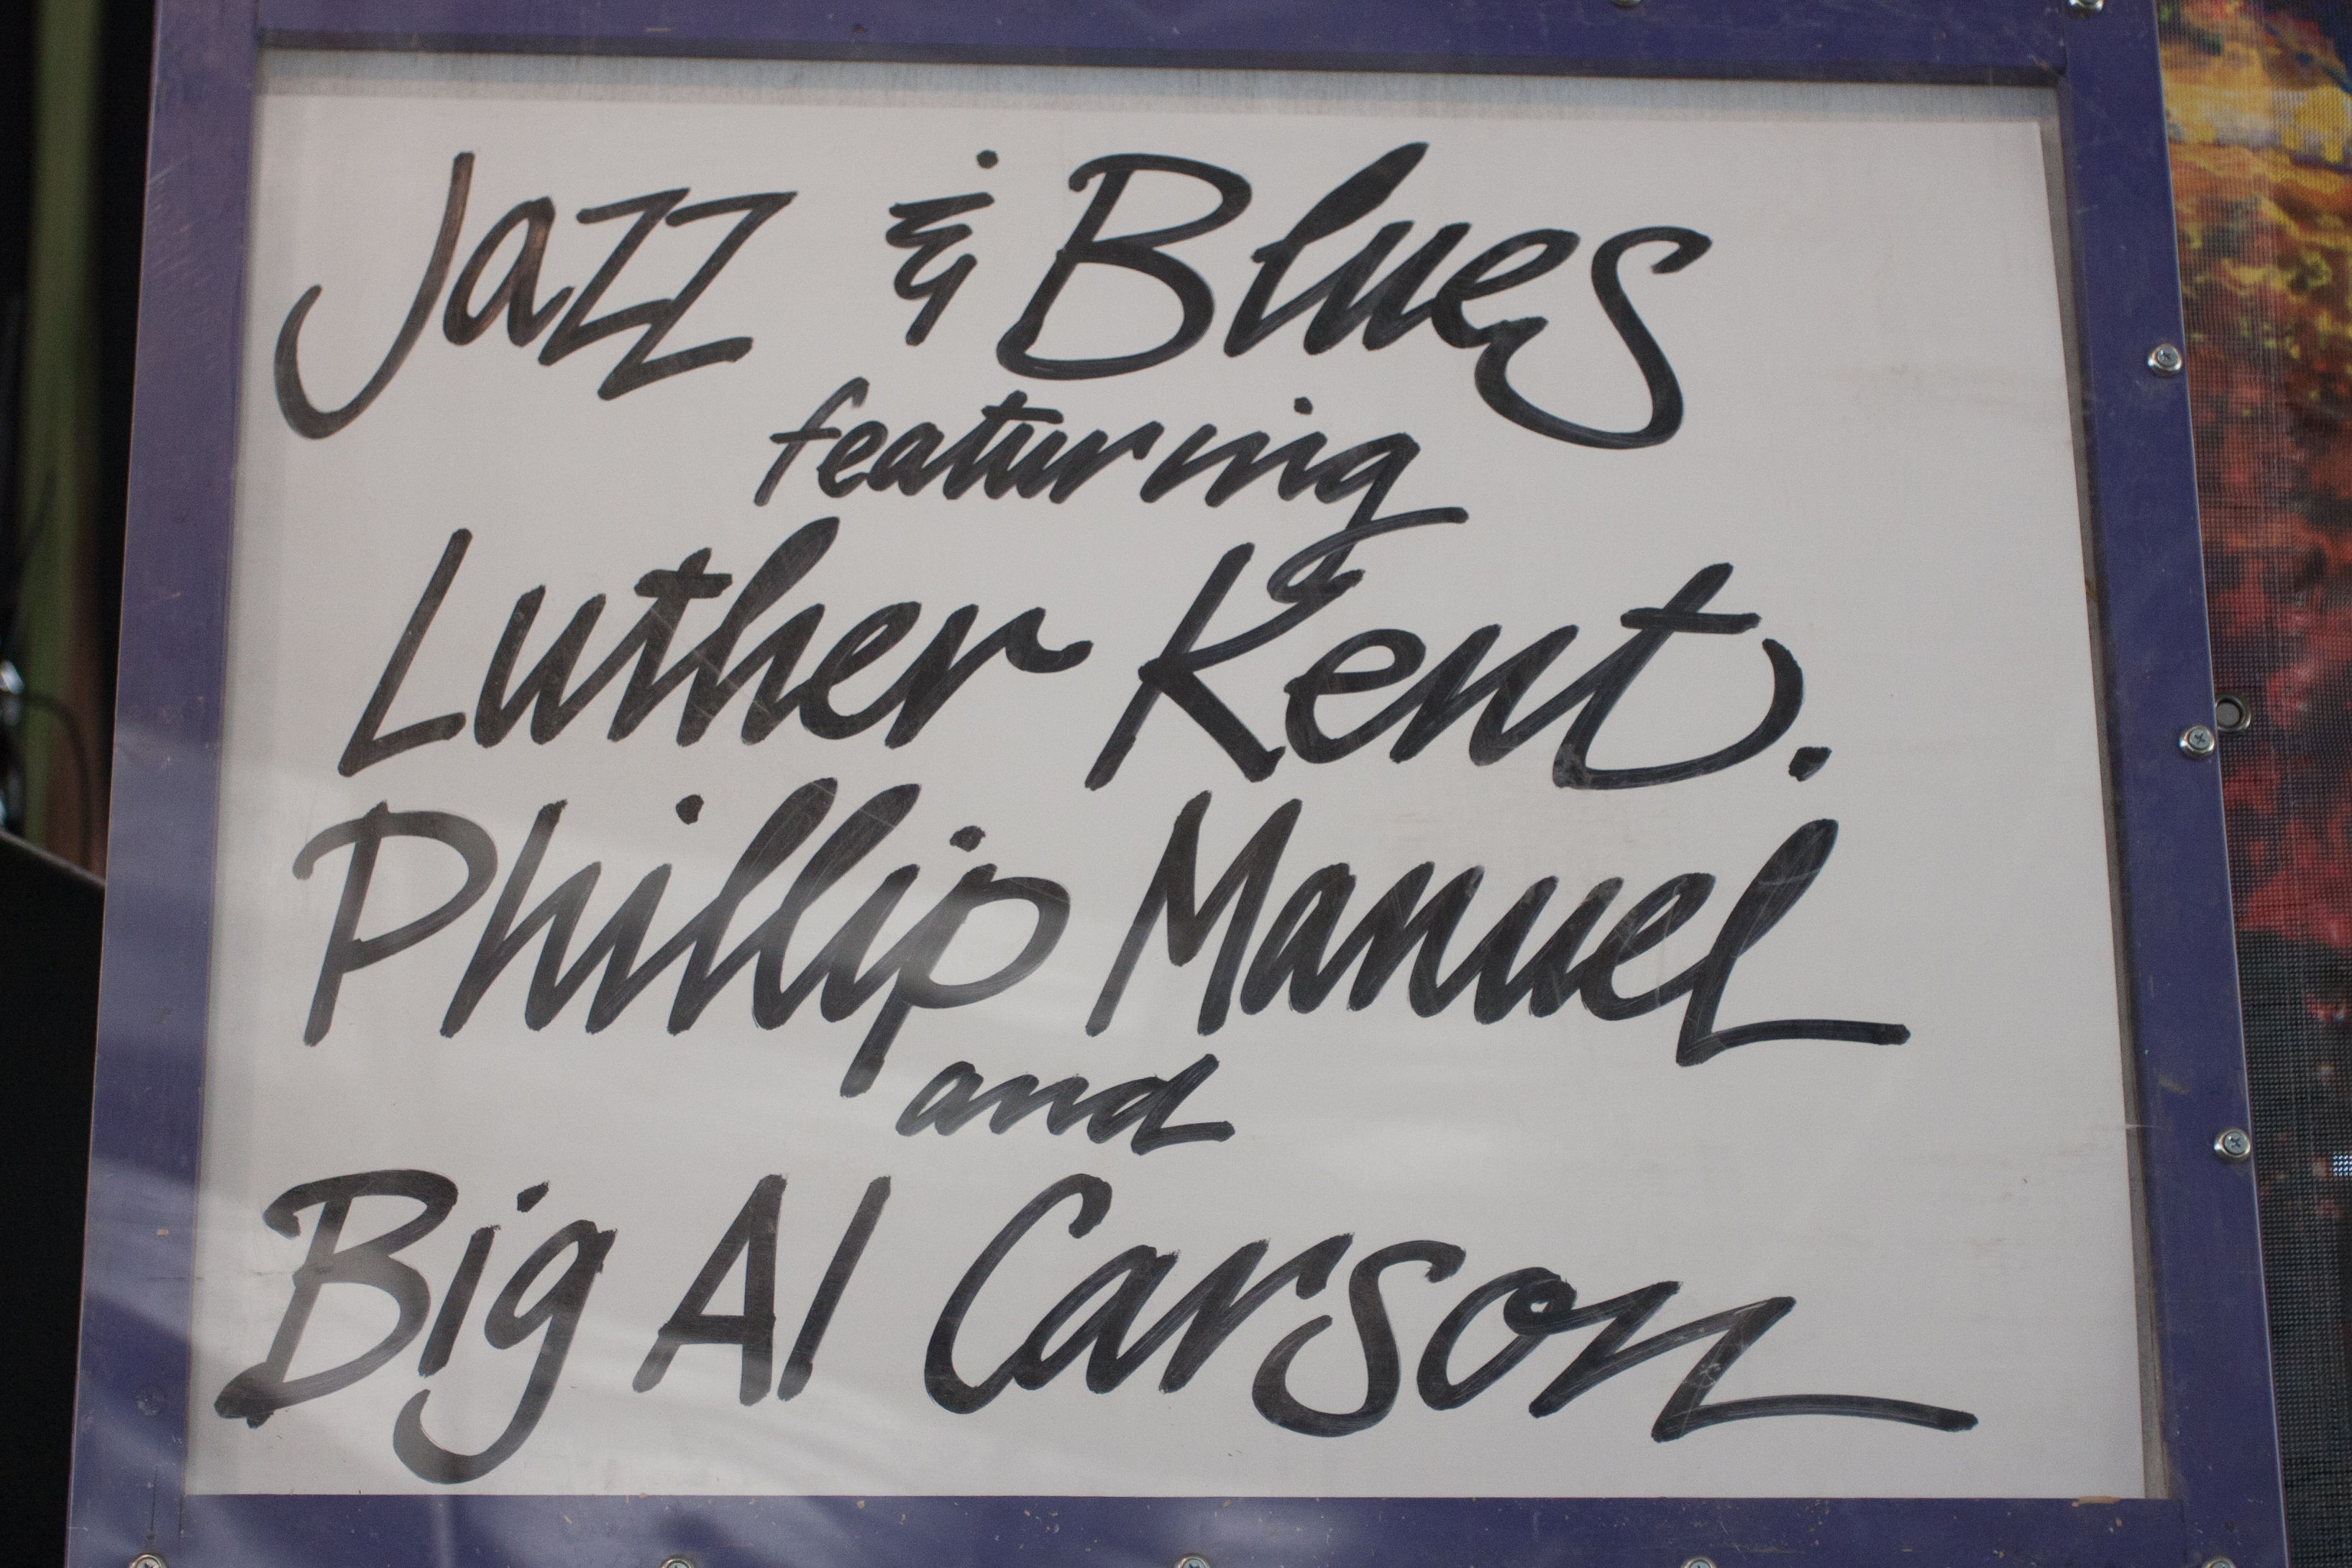 Jazz & Blues
featuring
Luther Kent.
Phillip Manuel
and
Big Al Carson